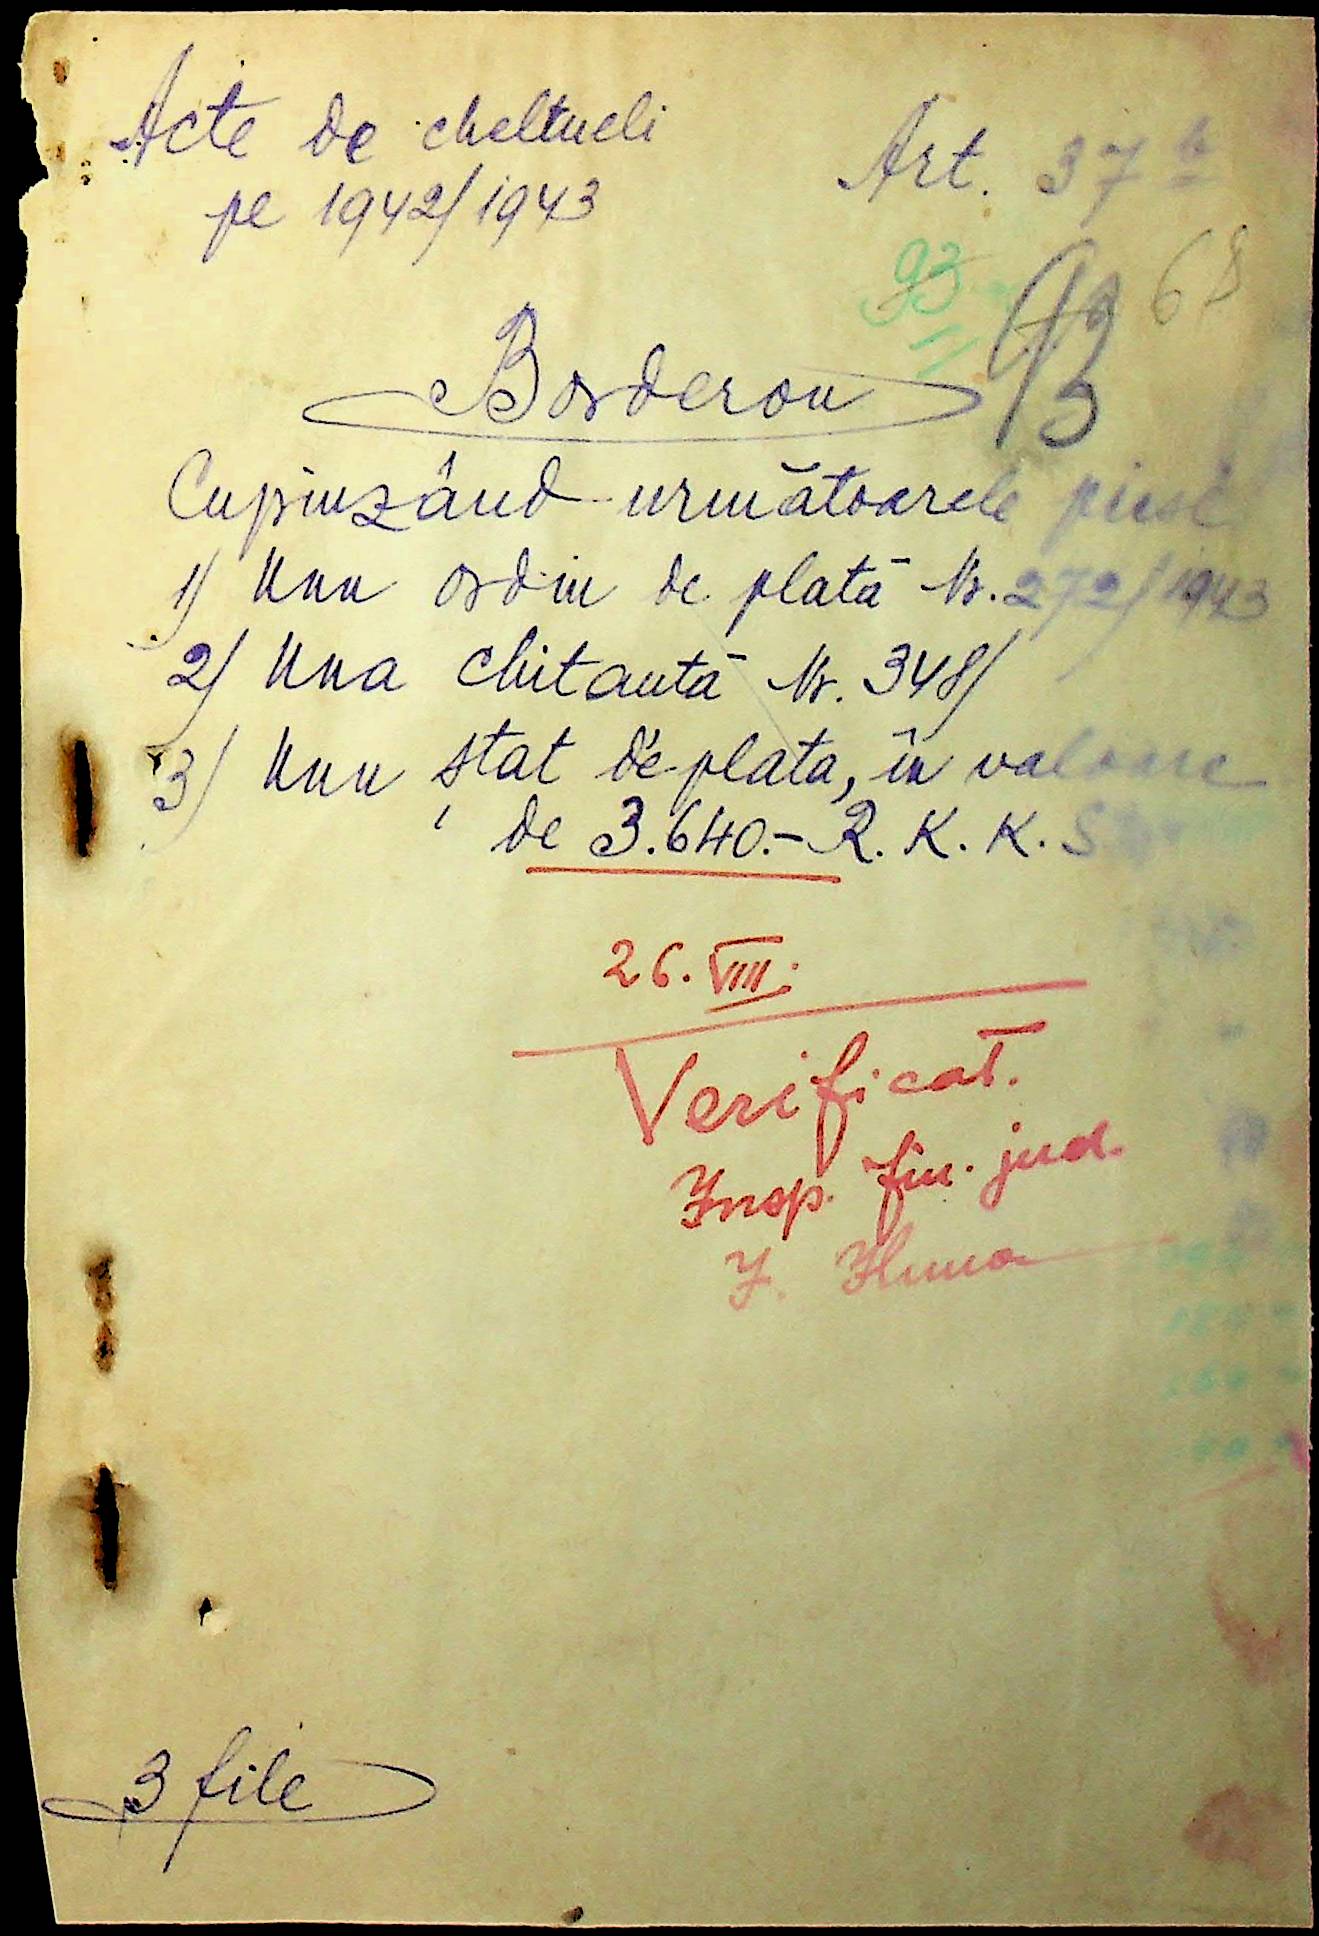 Acte de cheltueli
pe 1942/1943
Art. 37 b
93
93
68
Borderou
Cuprinzând următoarele piese
1) Unu ordin de plată Nr. 272/1943
2) Una chitantă Nr. 348/
3) Unu stat de plata, în valoare
de 3.640.- R. K. K. S
26. VIII.
Verificat.
Insp. fin. jud.
3 file